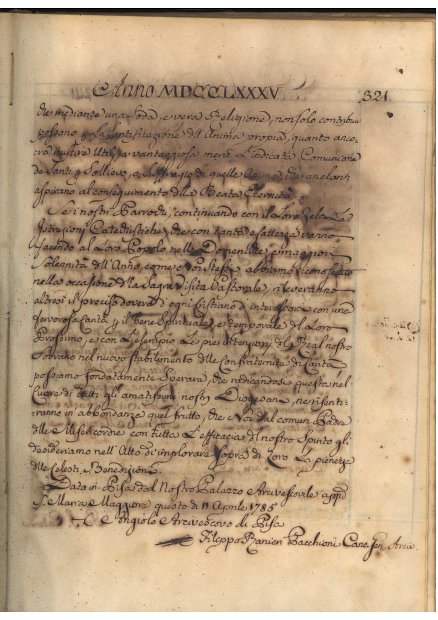 Anno MDCCLXXXV 321
che mediante una soda, e vera Religione, non solo contribui
possano p la Santificazione dell'Anima propria, quanto anco
ra essere utile, e vantaggiosa mente l'indicata Comunione
de Santi p sollievo, e suffragio di quelle che anelanti
aspirano al conseguimento della Beata Eternità
Se i nostri Parrochi, continuando con il Loro Zelo le
Istruzioni Catechistiche, che con santa esattezza vanno
facendo al Loro Popolo nelle Domeniche, e in maggiori
Solennità dell'Anno, come Noi stessi abbiamo riconosciuto
nella occasione della Sagra Visita Pastorale,
altresì il preciso dovere di ogni Cristiano d'interessarsi con una
fervorosa Carità p il bene Spirituale, e temporale del Loro
Prossimo, e con l'esempio Le pie intenzioni del Real nostro
Sovrano nel nuovo stabilimento delle Confraternite di Carità
possiamo fondatamente sperare, che radicandosi questa nel
Cuore di tutti gli amatissimi nostri Diogesani, ne risenti
ranno in abbondanza quel frutto, che Noi dal comun Padre
delle Misericordie con tutta l'efficacia del nostro Spirito gli
desideriamo nell'Atto di implorare sopra di Loro la pienezza
delle Celesti Benedizioni
Data in Pisa dal Nostro Palazzo Arcivescovile
S. Maria Maggiore questo dì 11 Aprile 1785
Angiolo Arcivescovo di Pisa
Filippo Ranieri Bacchioni Canc.